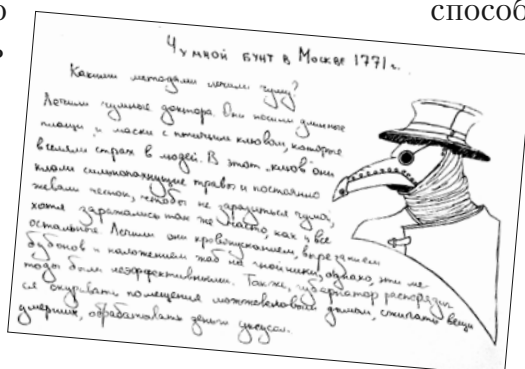 о
способ
Чумной бунт в Москве 1771 г.
Какими методами лечили чуму?
Лечили чумные доктора. Они носили длинные
плащи и маски с птичьим клювом, которые
вселяли страх в людей. В этот „клюв" они
клали сильнопахнущие травы и постоянно
жевали чеснок, чтобы не заразиться чумой,
хотя заражались так же часто, как и все
остальные. Лечили они кровопусканием, вырезанием
бубонов и наложением жаб на гнойники, однако, эти ме-
тоды были неэффективными. Также, губернатор распорядил-
ся окуривать помещения можжевеловым дымом, сжигать вещи
умерших, обрабатывать деньги уксусом.